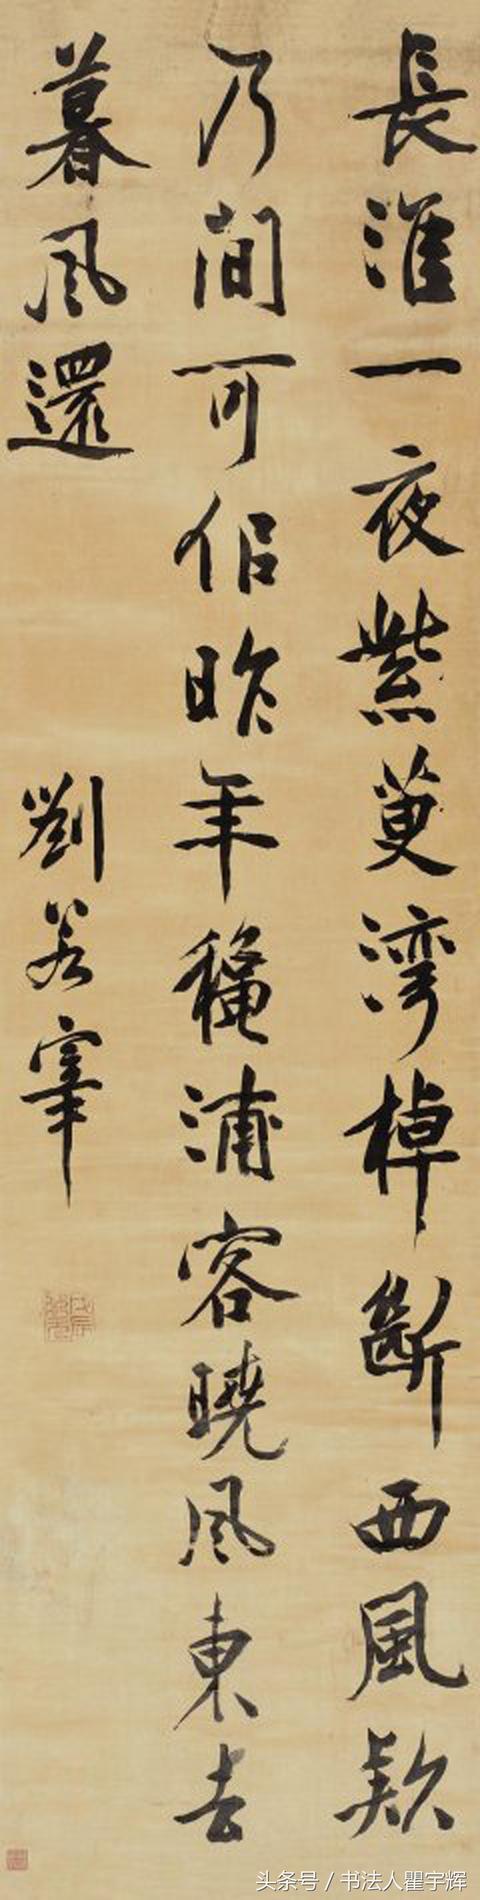 長淮一夜紫萸湾棹斷西風欸
乃間可佀昨年穐浦客曉風東去
暮風還
劉若宰
头条号 / 书法人瞿宇辉